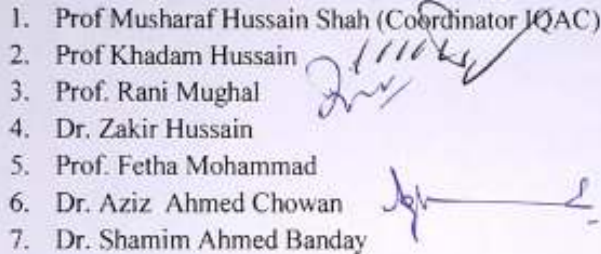 1. Prof Musharaf Hussain Shah (Coordinator IQAC)
2. Prof Khadam Hussain
3. Prof. Rani Mughal
4. Dr. Zakir Hussain
5. Prof. Fetha Mohammad
6. Dr. Aziz Ahmed Chowan
7. Dr. Shamim Ahmed Banday